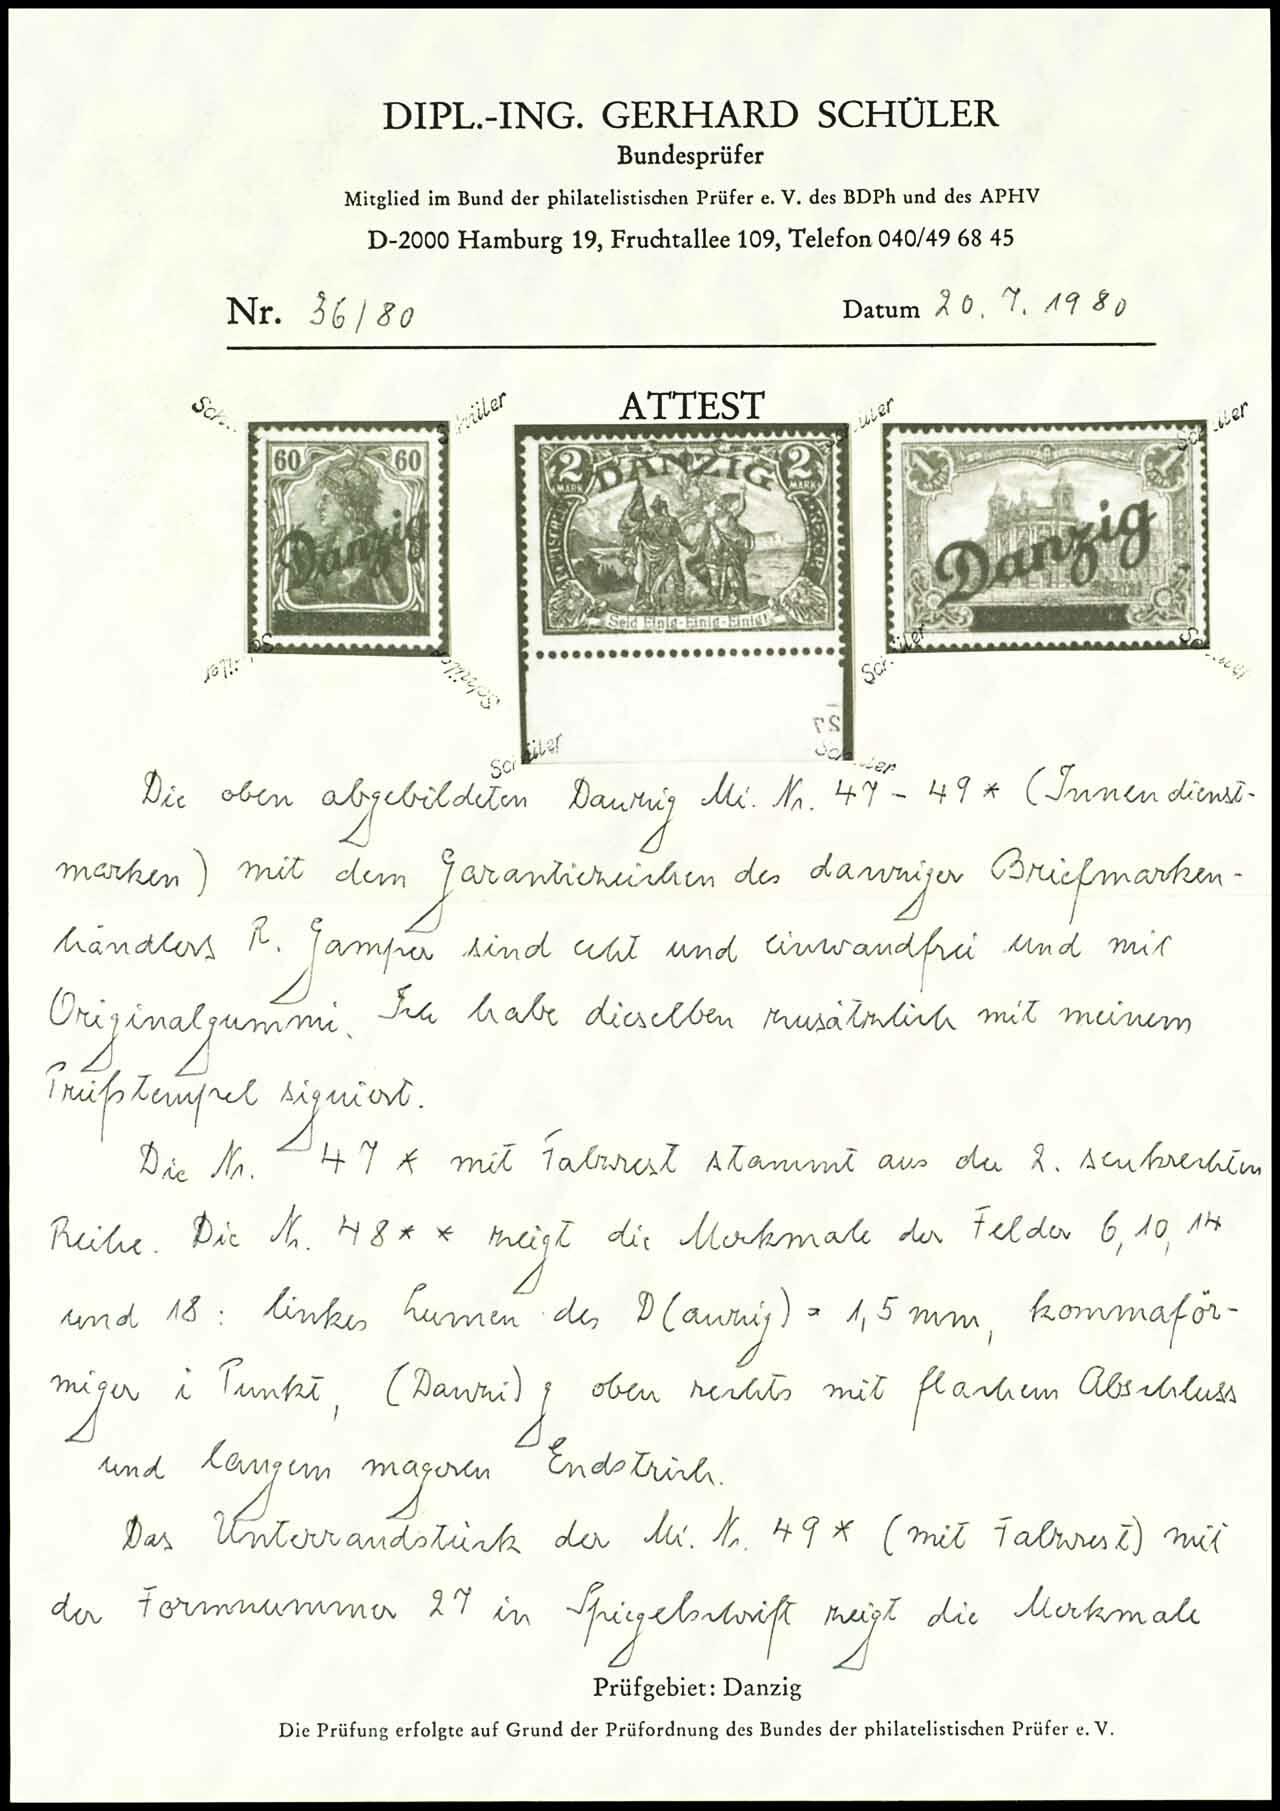 DIPL.-ING. GERHARD SCHÜLER
Bundesprüfer
Mitglied im Bund der philatelistischen Prüfer e. V. des BDPh und des APHV
D-2000 Hamburg 19, Fruchtallee 109, Telefon 040/49 68 45
Nr. 36/80
Datum 20. 7. 1980
ATTEST
Schüler
Schüler
Schüler
60 60
Danzig
2 MARK DANZIG 2 MARK
Seid Einig-Einig-Einig!
27
1 1
Danzig
Die oben abgebildeten Danzig Mi. Nr. 47 - 49 * (Innendienst-
marken) mit dem Garantiezeichen des danziger Briefmarken-
händlers R. Gamper sind echt und einwandfrei und mit
Originalgummi. Ich habe dieselben zusätzlich mit meinem
Prüfstempel signiert.
Die Nr. 47 * mit Falzrest stammt aus der 2. senkrechten
Reihe. Die Nr. 48 * * zeigt die Merkmale der Felder 6, 10, 14
und 18 : linkes des D(anzig) = 1,5 mm, kommaför-
miger i Punkt, (Danzi) g oben rechts mit flachem Abschluss
und langem mageren Endstrich.
Das Unterrandstück der Mi. Nr. 49 * (mit Falzrest) mit
der Formnummer 27 in Spiegelschrift zeigt die Merkmale
Prüfgebiet: Danzig
Die Prüfung erfolgte auf Grund der Prüfordnung des Bundes der philatelistischen Prüfer e. V.